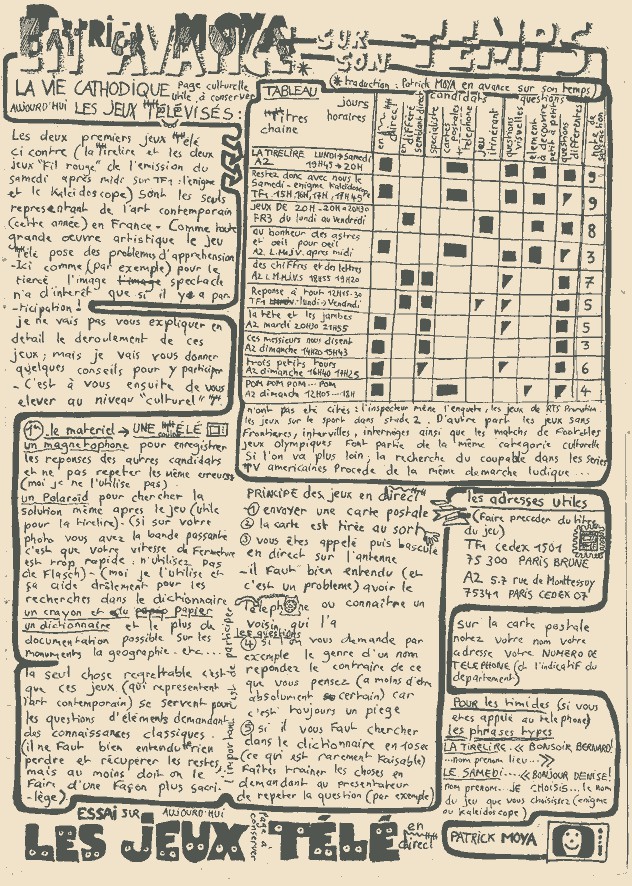 Patrick MOYA
EN AVANCE * SUR SON TEMPS
(* traduction : Patrick MOYA en avance sur son temps)
LA VIE CATHODIQUE Page culturelle utile, à conserver
AUJOURD'HUI LES JEUX TÉLÉVISÉS:
Les deux premiers jeux télé
ci contre (la tirelire et les deux
jeux "Fil rouge" de l'émission du
samedi après midi sur TF1: l'énigme
et le kaleidoscope) sont les seuls
representant de l'art contemporain
(cette année) en France - Comme toute
grande œuvre artistique le jeu
télé pose des problèmes d'appréhension
- Ici comme (par exemple) pour le
tiercé l'image spectacle
n'a d'intérêt que si il y a par
-ticipation!
je ne vais pas vous expliquer en
detail le deroulement de ces
jeux; mais je vais vous donner
quelques conseils pour y participer
- C'est à vous ensuite de vous
elever au niveau "culturel" ...
TABLEAU
titres
chaine
jours
horaires
candidats
questions
en direct
en différé
semblant direct
specialiste
cartes postales
telephone
jeu itinérant
questions visuelles
élément à decouvrir petit à petit
questions differentes
note de satisfaction
LA TIRELIRE LUNDI→Samedi
A2 19H45→20H
9
Restez donc avec nous le
Samedi - enigme Kaleidoscope
TF1 15H, 16H, 17H, 17H45
9
JEUX DE 20H - 20H→20H30
FR3 du lundi au vendredi
8
au bonheur des astres
et oeil pour oeil
A2 L.M.J.V. après midi
3
des chiffres et des lettres
A2 L.M.M.J.V.S 18H55 19H20
7
Réponse à tout 12H15-30
TF1 lundi→Vendredi
5
la tête et les jambes
A2 mardi 20H30 21H55
5
ces messieurs nous disent
A2 dimanche 14H20 15H43
3
trois petits tours
A2 dimanche 16H40 17H25
6
POM POM POM... POM
A2 dimanche 12H05----18H
4
n'ont pas été cités: l'inspecteur mène l'enquête, les jeux de RTS Promotion
les jeux sur le sport dans stade 2. D'autre part les jeux sans
Frontières, intervilles, interneiges ainsi que les matchs de Foot et les
jeux Olympiques Font partie de la même catégorie culturelle
Si l'on va plus loin, la recherche du coupable dans les Series
TV americaines Procede de la même demarche ludique...
1° le materiel → UNE TÉLÉ
un magnetophone pour enregistrer
les reponses des autres candidats
et ne pas repeter les même erreurs
(moi je ne l'utilise pas)
un Polaroid pour chercher la
solution même apres le jeu (utile
pour la tirelire)- (si sur votre
photo vous avez la bande passante
c'est que votre vitesse de Fermeture
est trop rapide: n'utilisez pas
de Flasch) - (moi je l'utilise et
ça aide drôlement pour les
recherches dans le dictionnaire
un crayon et du papier
un dictionnaire et le plus de
documentation possible sur les
monuments la geographie - etc...
l'important est de participer
la seul chose regrettable c'est
que ces jeux (qui representent
l'art contemporain) se servent pour
les questions d'éléments demandant
des connaissances classiques -
(il ne Faut bien entendu rien
perdre et récuperer les restes,
mais au moins doit on le
Faire d'une Façon plus sacri-
-lège).
PRINCIPE des jeux en direct
1 envoyer une carte postale
2 la carte est tirée au sort
3 vous êtes appelé puis bascule
en direct sur l'antenne
- il Faut bien entendu (et
c'est un problème) avoir le
téléphone ou connaître un
voisin qui l'a
les questions
4 Si l'on vous demande par
exemple le genre d'un nom
repondez le contraire de ce
que vous pensez (a moins d'être
absolument certain) car
c'est toujours un piege
5 si il vous Faut chercher
dans le dictionnaire en 10sec
(ce qui est rarement Faisable)
Faîtes trainer les choses en
demandant au presentateur
de repeter la question (par exemple)
les adresses utiles
(Faire preceder du titre
du jeu)
TF1 cedex 1501
75 300 PARIS BRUNE
A2 5.7 rue de Monttessuy
75341 PARIS CEDEX 07
sur la carte postale
notez votre nom votre
adresse votre NUMERO DE
TELEPHONE (et l'indicatif du
departement)
POUR les timides (si vous
etes appelé au telephone)
les phrases types
LA TIRELIRE - « BONSOIR BERNARD!
... nom prenom lieu ... »
LE SAMEDI---« BONJOUR DENISE!
nom prenom.. JE CHOISIS... le nom
du jeu que vous choisissez (enigme
ou kaleidoscope)
ESSAI SUR AUJOURD'HUI
LES JEUX TÉLÉ en direct
Page à conserver
PATRICK MOYA